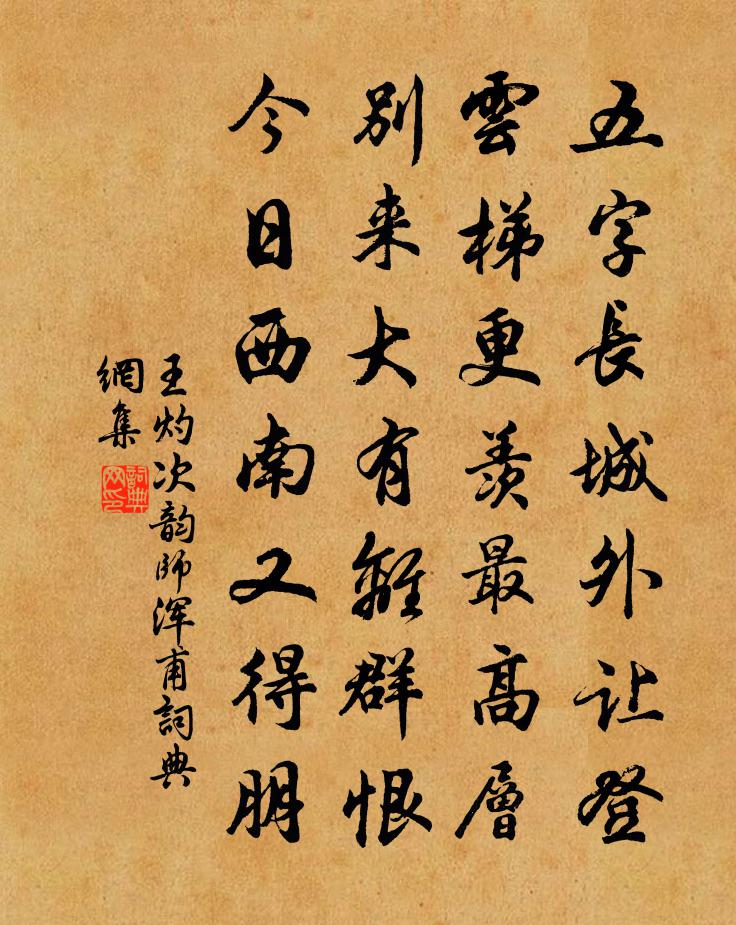 五字長城外让登
雲梯更羡最高層
別来大有離群恨
今日西南又得朋
王灼次韵師浑甫詞典
網集
詞典网印